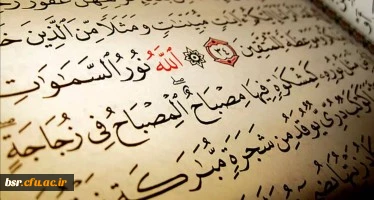 مُّبَيِّنَٰتٍ وَمَثَلًا مِّنَ ٱلَّذِينَ
لِّلْمُتَّقِينَ ٣٤ ٱللَّهُ نُورُ ٱلسَّمَٰوَٰتِ
كَمِشْكَوٰةٍ فِيهَا مِصْبَاحٌ ٱلْمِصْبَاحُ فِى زُجَاجَةٍ
كَوْكَبٌ دُرِّىٌّ يُوقَدُ مِن شَجَرَةٍ مُّبَٰرَكَةٍ
bsr.cfu.ac.ir